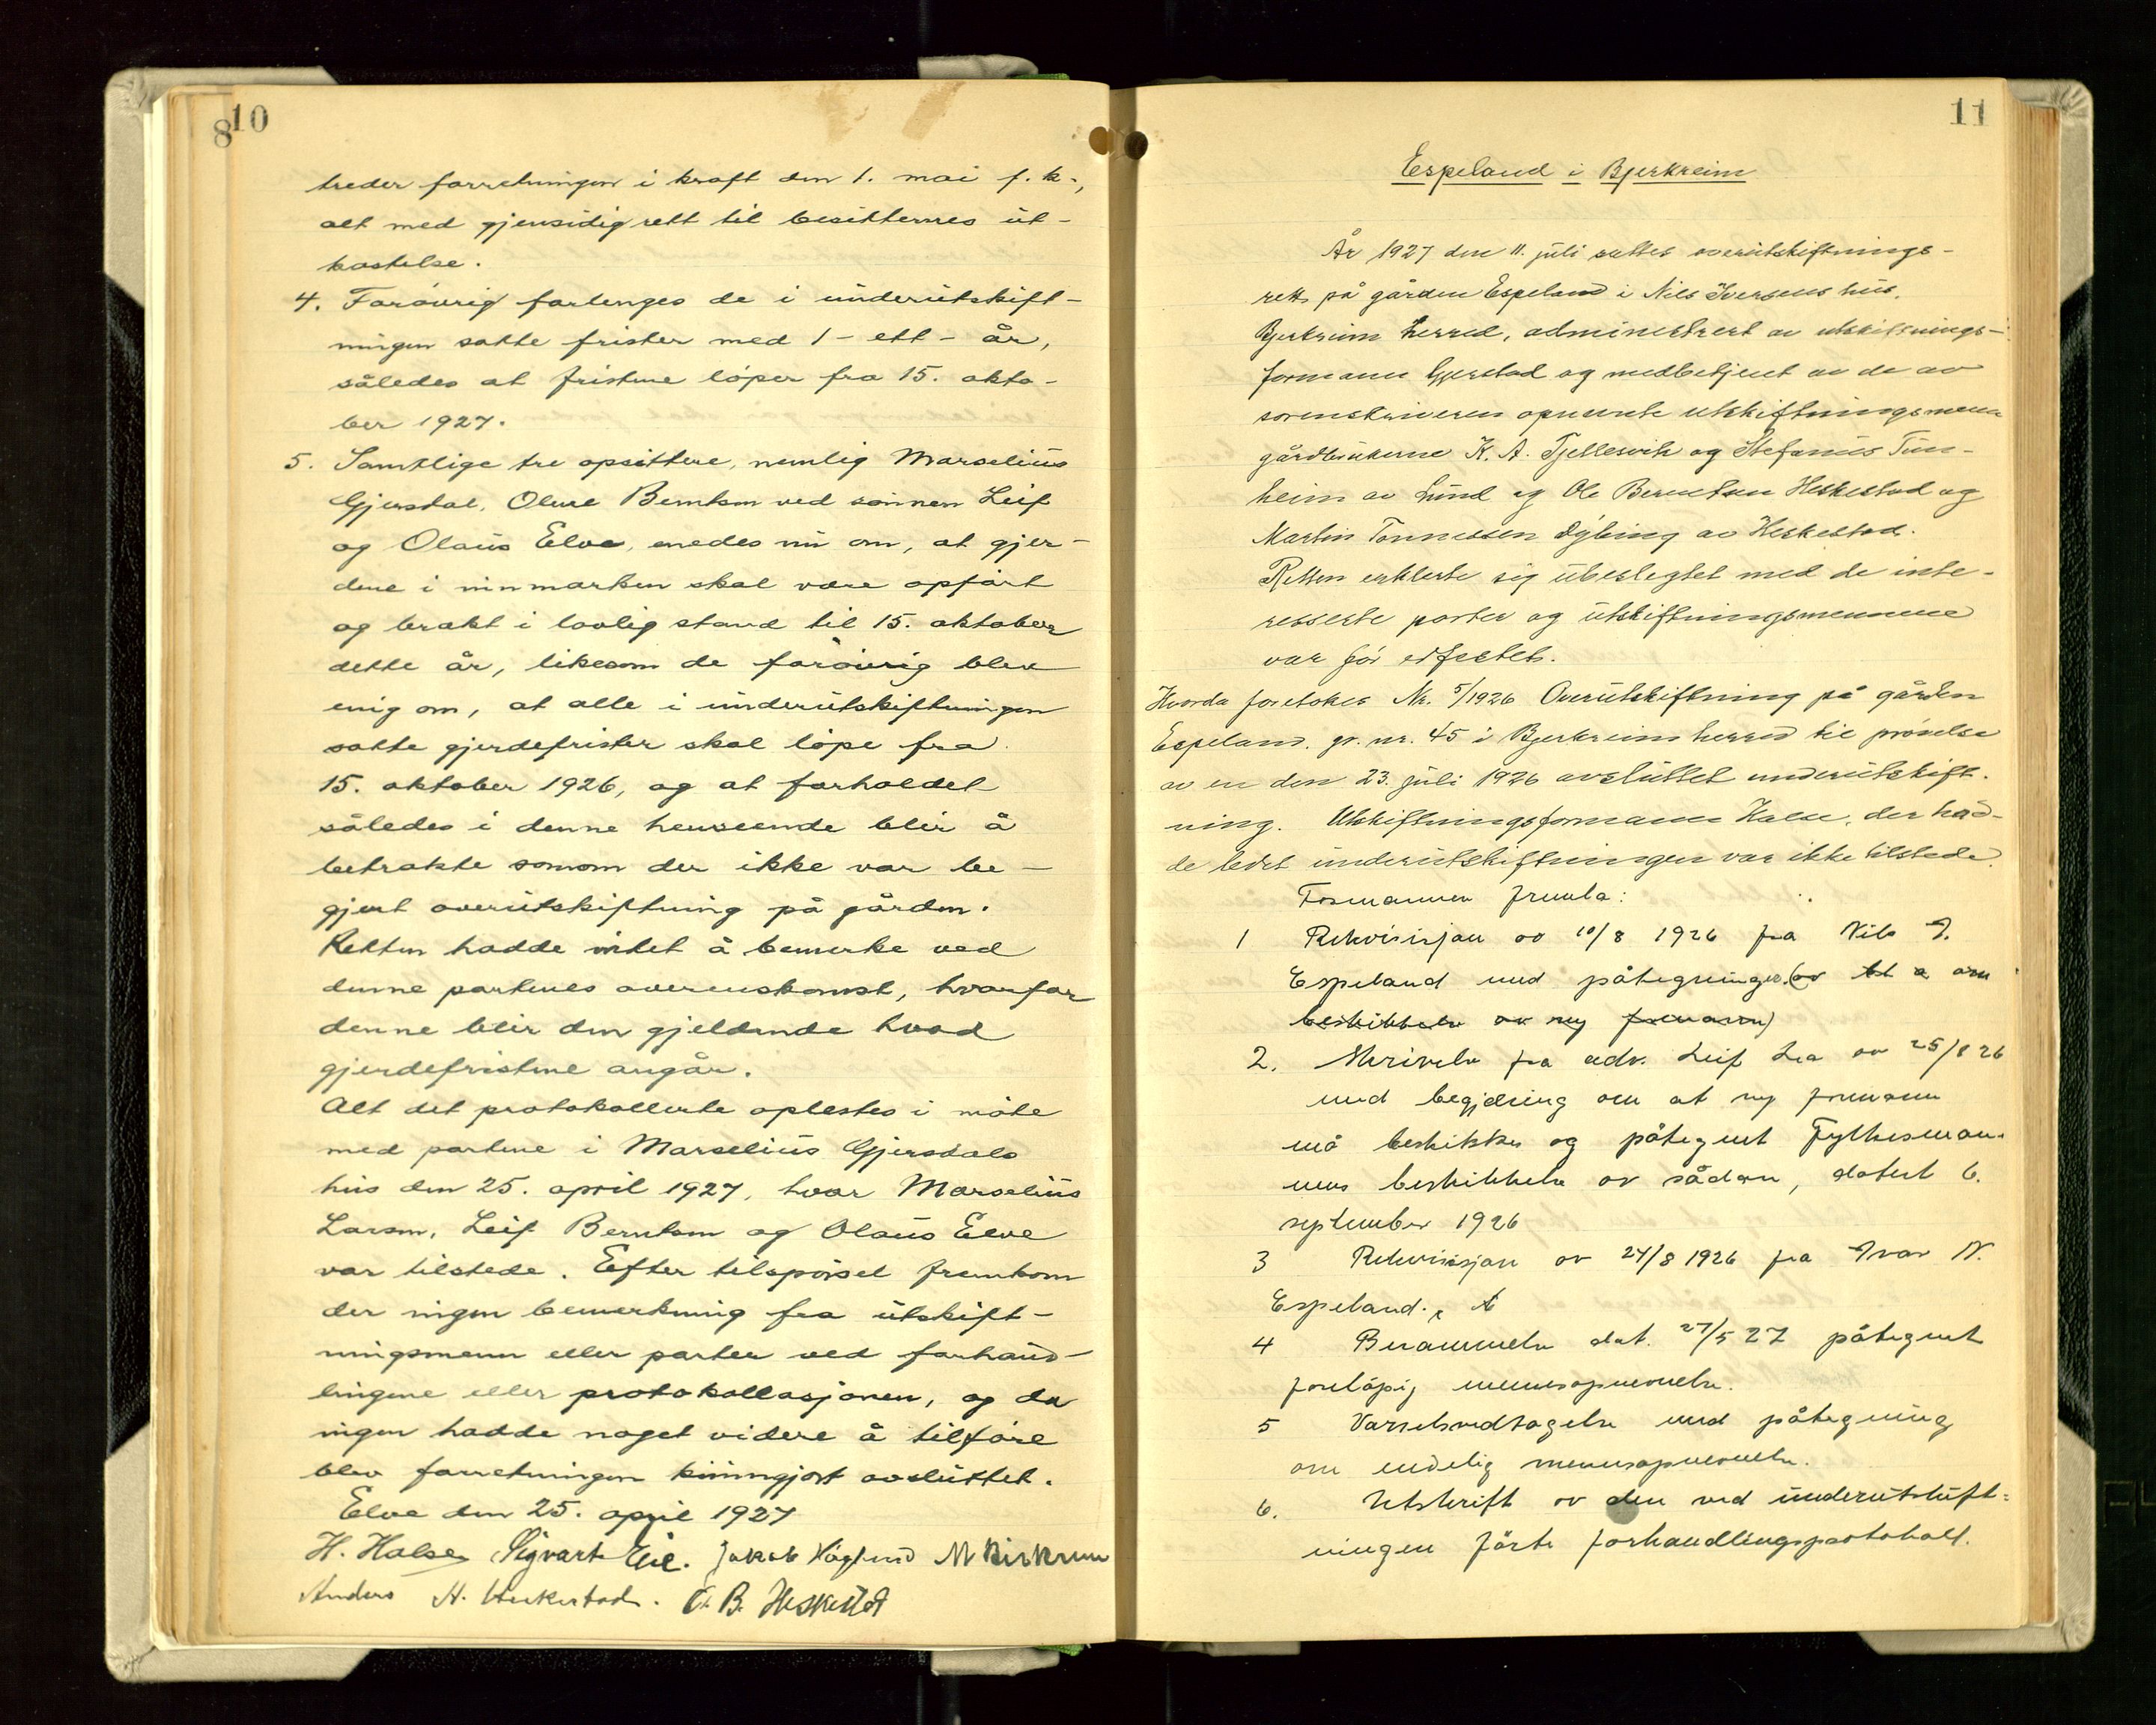 8 10
treder forretningen i kraft den 1. mai f. k.,
alt med gjensidig rett til besitternes ut-
kastelse.
4. Forøvrig forlenges de i underutskift-
ningen satte frister med 1 - ett - år,
således at fristene löper fra 15. okto-
ber 1927.
5. Samtlige tre opsittere, nemlig Marselius
Gjersdal, Oluse Berntsen ved sønnen Leif
og Olaus Eelve, enedes nu om, at gjer-
dene i innmarken skal være opfört
og brakt i lovlig stand til 15. oktober
dette år, likesom de forøvrig blev
enig om, at alle i underutskiftningen
satte gjerdefrister skal löpe fra
15. oktober 1926, og at forholdet
således i denne henseende blir å
betrakte somom der ikke var be-
gjert overutskiftning på gården.
Retten hadde intet å bemerke ved
denne partenes overenskomst, hvorfor
denne blir den gjeldende hvad
gjerdefristene angår.
Alt det protokollerte oplestes i möte
med partene i Marselius Gjersdals
hus den 25. april 1927, hvor Marselius
Larsen, Leif Berntsen og Olaus Eelve
var tilstede. Efter tilspörsel fremkom
der ingen bemerkning fra utskift-
ningsmenn eller parter ved forhand-
lingene eller protokollasjonen, og da
ingen hadde noget videre å tilföre
blev forretningen kunngjort avsluttet.
Eelve den 25. april 1927
H. Halse Sigvart Eie. Jakob Häglund M Birkrem
Anders H. Heskestad. O. B. Heskestad
11
Espeland i Bjerkreim
År 1927 den 11. juli sattes overutskiftnings-
rett på gården Espeland i Nils Iversens hus,
Bjerkreim herred, administrert av utskiftnings-
formann Gjerstad og medbetjent av de av
sorenskriveren opnevnte utskiftningsmenn
gårdbrukerne K. A. Tjellesvik og Stefanus Tun-
heim av Lund og Ole Berntsen Heskestad og
Martin Tönnessen Dybing av Heskestad.
Retten erklærte sig ubeslegtet med de inte-
resserte parter og utskiftningsmennene
var för edfestet.
Hvorda foretokes Nr. 5/1926 Overutskiftning på gården
Espeland, gr. nr. 45 i Bjerkreim herred til prövelse
av en den 23. juli 1926 avsluttet underutskift-
ning. Utskiftningsformann Halse, der had-
de ledet underutskiftningen var ikke tilstede.
Formannen fremla:
1 Rekvisisjon av 10/8 1926 fra Nils I.
Espeland med påtegninger. (av om
beskikkelse av ny formann)
2. Skrivelse fra adv. Leif Lea av 25/8 26
med begjæring om at ny formann
må beskikkes og påtegnet Fylkesman-
nens beskikkelse av sådan, datert 6.
september 1926
3 Rekvisisjon av 24/8 1926 fra Ivar N.
Espeland.
4 Berammelse dat. 27/5 27 påtegnet
forelöpig mennsopnevnelse.
5 Varselsvedtagelse med påtegning
om endelig mennsopnevnelse.
6. Utskrift av den ved underutskift-
ningen förte forhandlingsprotokoll.